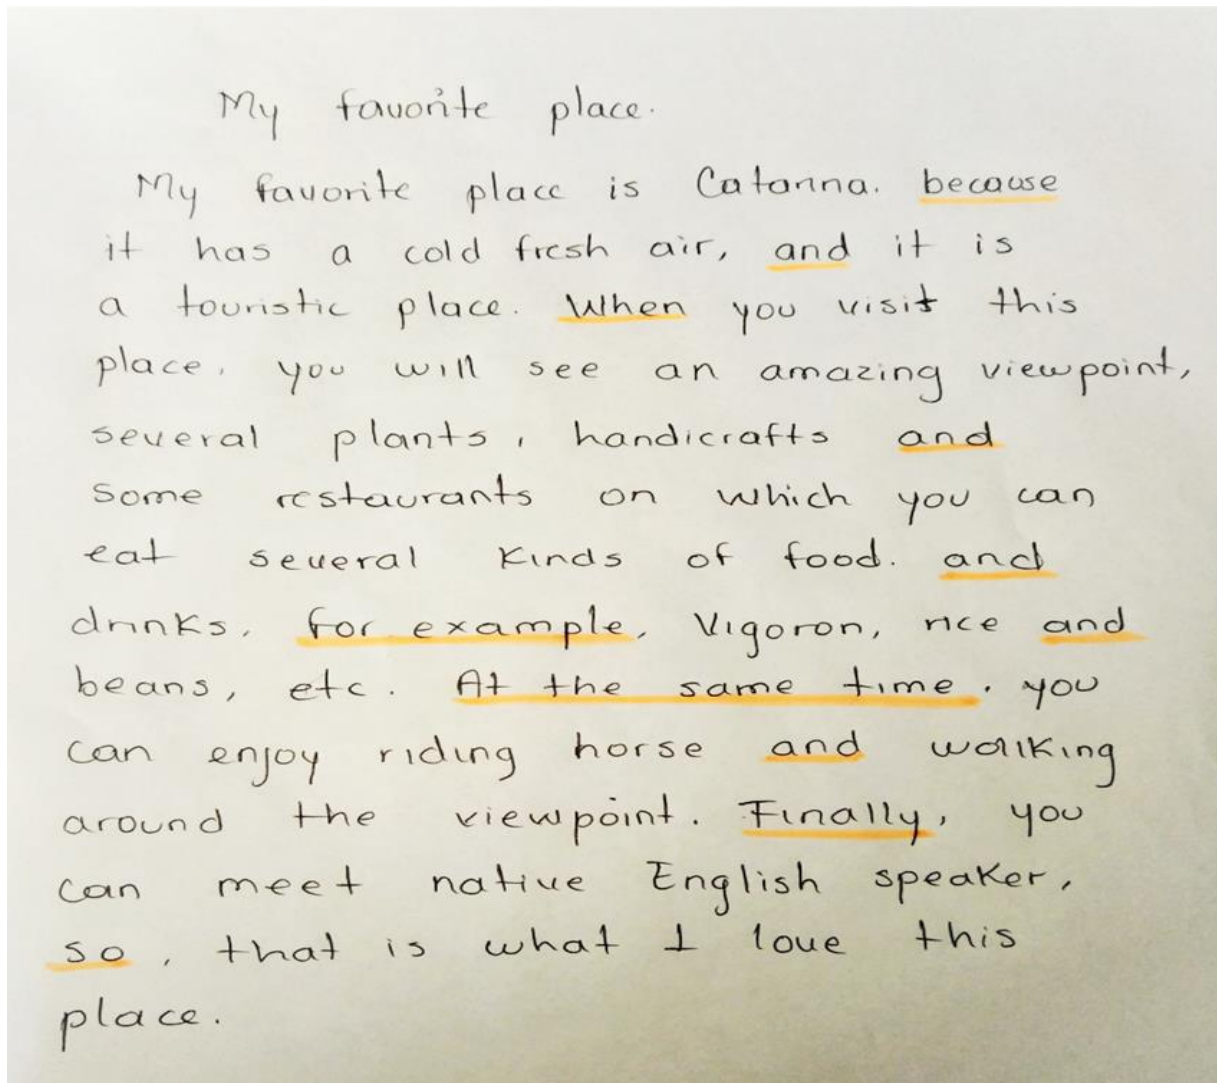 My favorite place.
My favorite place is Catarina. because
it has a cold fresh air, and it is
a touristic place. When you visit this
place, you will see an amazing viewpoint,
several plants, handicrafts and
some restaurants on which you can
eat several kinds of food. and
drinks, for example, Vigoron, rice and
beans, etc. At the same time, you
can enjoy riding horse and walking
around the viewpoint. Finally, you
can meet native English speaker,
so, that is what I love this
place.